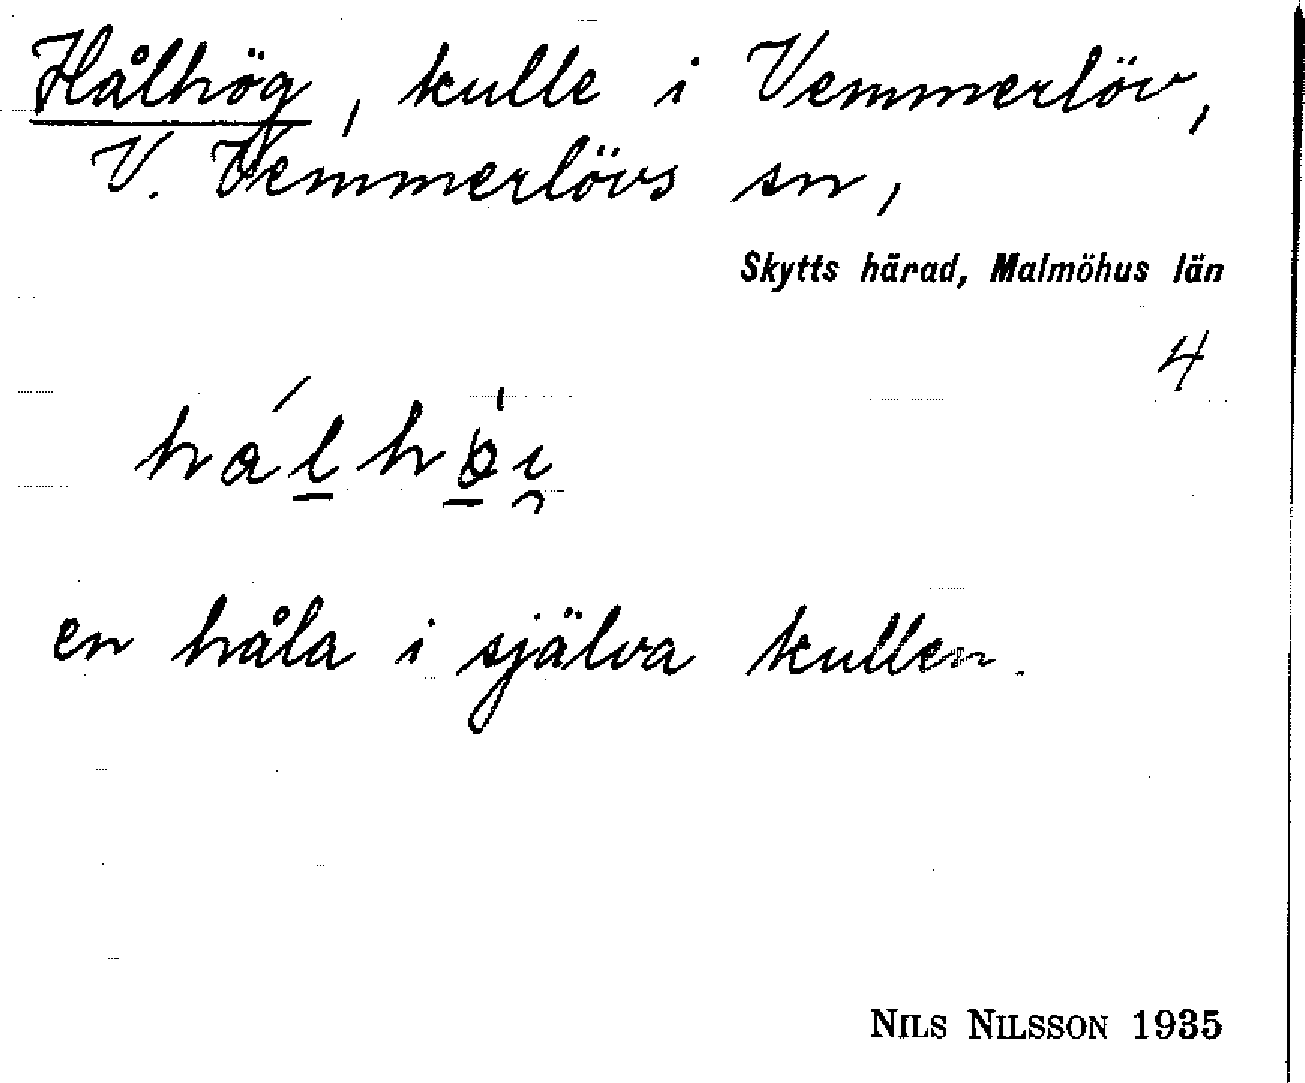 Hålhög, kulle i Vemmerlöv,
V. Vemmerlövs sn,
Skytts härad, Malmöhus län
4
hálhö̀i̯
en håla i själva kullen.
NILS NILSSON 1935